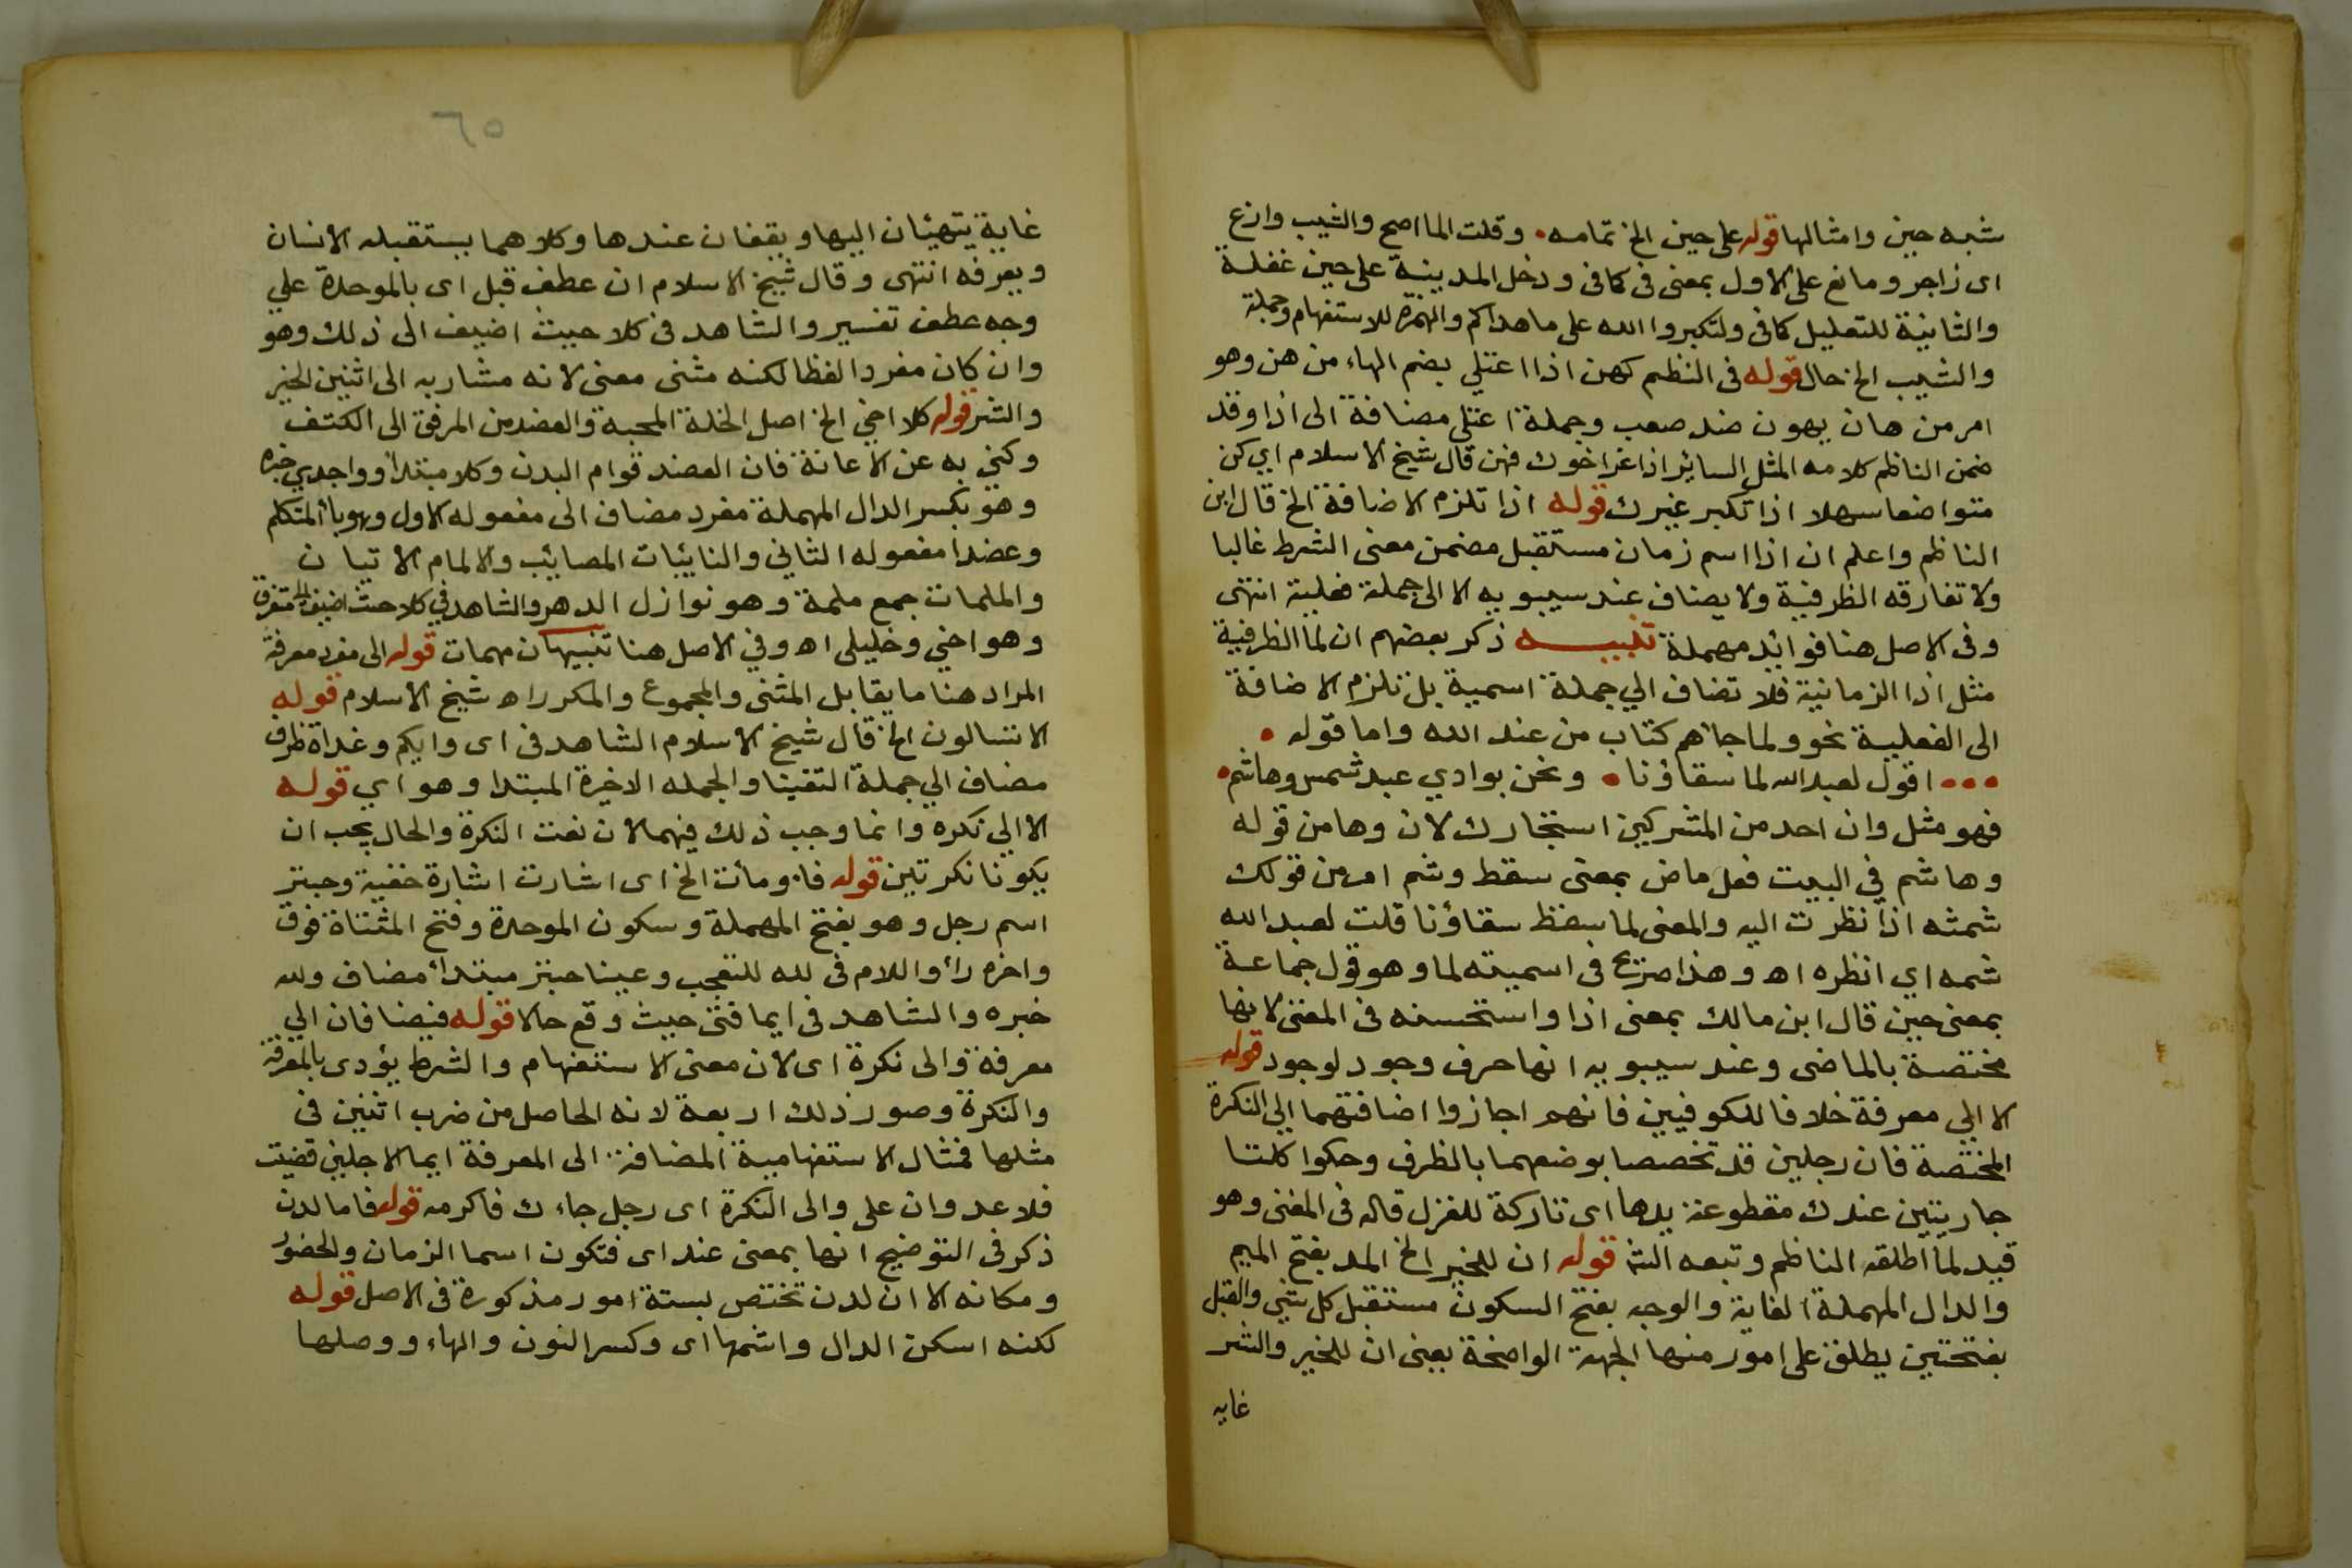 شبه حين وامثالها قوله على حين الخ تمامه • وقلت الما اصح والشيب وازع
اى زاجر ومانع على الاول بمعنى فى كما فى ودخل المدينة على حين غفلة
والثانية للتعليل كما فى ولتكبروا الله على ما هداكم والهمزه للاستفهام وجملة
والشيب الخ حال قوله فى النظم كهن اذا اعتلي بضم الهاء من هن وهو
امر من هان يهون ضد صعب وجملة اعتلى مضافة الى اذا وقد
ضمن الناظم كلامه المثل السائر اذا عز اخوك فهن قال شيخ الاسلام اي كن
متواضعا سهلا اذا تكبر غيرك قوله اذا تلزم الاضافة الخ قال ابن
الناظم واعلم ان اذا اسم زمان مستقبل مضمن معنى الشرط غالبا
ولا تفارقه الظرفية ولا يضاف عند سيبويه الا الى جملة فعلية انتهى
وفى الاصل هنا فوائد مهملة تنبيه ذكر بعضهم ان لما الظرفية
مثل اذا الزمانية فلا تضاف الي جملة اسمية بل تلزم الاضافة
الى الفعلية نحو ولما جاهم كتاب من عند الله واما قوله •
• • • اقول لعبد الله لما سقاؤنا • ونحن بوادي عبد شمس وهاشم •
فهو مثل وان احد من المشركين استجارك لان وها من قوله
وهاشم في البيت فعل ماض بمعنى سقط وشم امر من قولك
شمثه اذا نظرت اليه والمعنى لما سقط سقاؤنا قلت لعبد الله
شمه اي انظره اه وهذا صريح فى اسميته لما وهو قول جماعة
بمعنى حين قال ابن مالك بمعنى اذا واستحسنه فى المغنى لانها
مختصة بالماضى وعند سيبويه انها حرف وجود لوجود قوله
الا الي معرفة خلافا للكوفيين فانهم اجازوا اضافتهما الي النكرة
المختصة فان رجلين قد تخصصا بوضعهما بالظرف وحكوا كلتا
جاريتين عندك مقطوعة يدها اى تاركة للغزل قاله فى المغنى وهو
قيد لما اطلقه الناظم وتبعه الش قوله ان للخير الخ المد بفتح الميم
والدال المهملة الغاية والوجه بفتح السكون مستقبل كل شي والقبل
بفتحتين يطلق على امور منها الجهة الواضحة يعنى ان للخير والشر
غايه
٦٥
غاية يتهيئان اليها ويقفان عندها وكلاهما يستقبله الانسان
ويعرفه انتهى وقال شيخ الاسلام ان عطف قبل اى بالموحدة علي
وجه عطف تفسير والشاهد فى كلا حيث اضيف الى ذلك وهو
وان كان مفردا لفظا لكنه مثنى معنى لانه مشار به الى اثنين الخير
والشر قوله كلا اخي الخ اصل الخلة المحبة والعضد من المرفق الى الكتف
وكني به عن الاعانة فان العضد قوام البدن وكلا مبتدأ وواجدي خبره
وهو بكسر الدال المهملة مفرد مضاف الى مفعوله الاول وهو يا المتكلم
وعضدا مفعوله الثاني والنائبات المصائب والالمام الاتيان
والملمات جمع ملمة وهو نوازل الدهر والشاهد في كلا حيث اضيف الى متفرق
وهو اخي وخليلى اه وفي الاصل هنا تنبيهان مهمات قوله الى مفرد معرفة
المراد هنا ما يقابل المثنى والمجموع والمكرر اه شيخ الاسلام قوله
الا تسالون الخ قال شيخ الاسلام الشاهد فى اى وايكم وغداة ظرف
مضاف الي جملة التقينا والجمله الاخيرة المبتدا وهو اي قوله
الا الي نكره وانما وجب ذلك فيهما لان نعت النكرة والحال يجب ان
يكونا نكرتين قوله فاومأت الخ اى اشارت اشارة خفية وحبتر
اسم رجل وهو بفتح المهملة وسكون الموحدة وفتح المثناة فوق
واخره رأ واللام فى لله للتعجب وعينا حبتر مبتدأ مضاف ولله
خبره والشاهد فى ايما فتى حيث وقع حالا قوله فيضافان الي
معرفة والى نكرة اى لان معنى الاستفهام والشرط يؤدى بالمعرفة
والنكرة وصور ذلك اربعة لانه الحاصل من ضرب اثنين فى
مثلها فمثال الاستفهامية المضافة الى المعرفة ايما الاجلين قضيت
فلا عدوان على والى النكرة اى رجل جاءك فاكرمه قوله فاما لدن
ذكر فى التوضيح انها بمعنى عند اى فتكون اسما الزمان والحضور
ومكانه الا ان لدن تختص بستة امور مذكورة فى الاصل قوله
لكنه اسكن الدال واشمها اى وكسر النون والهاء ووصلها